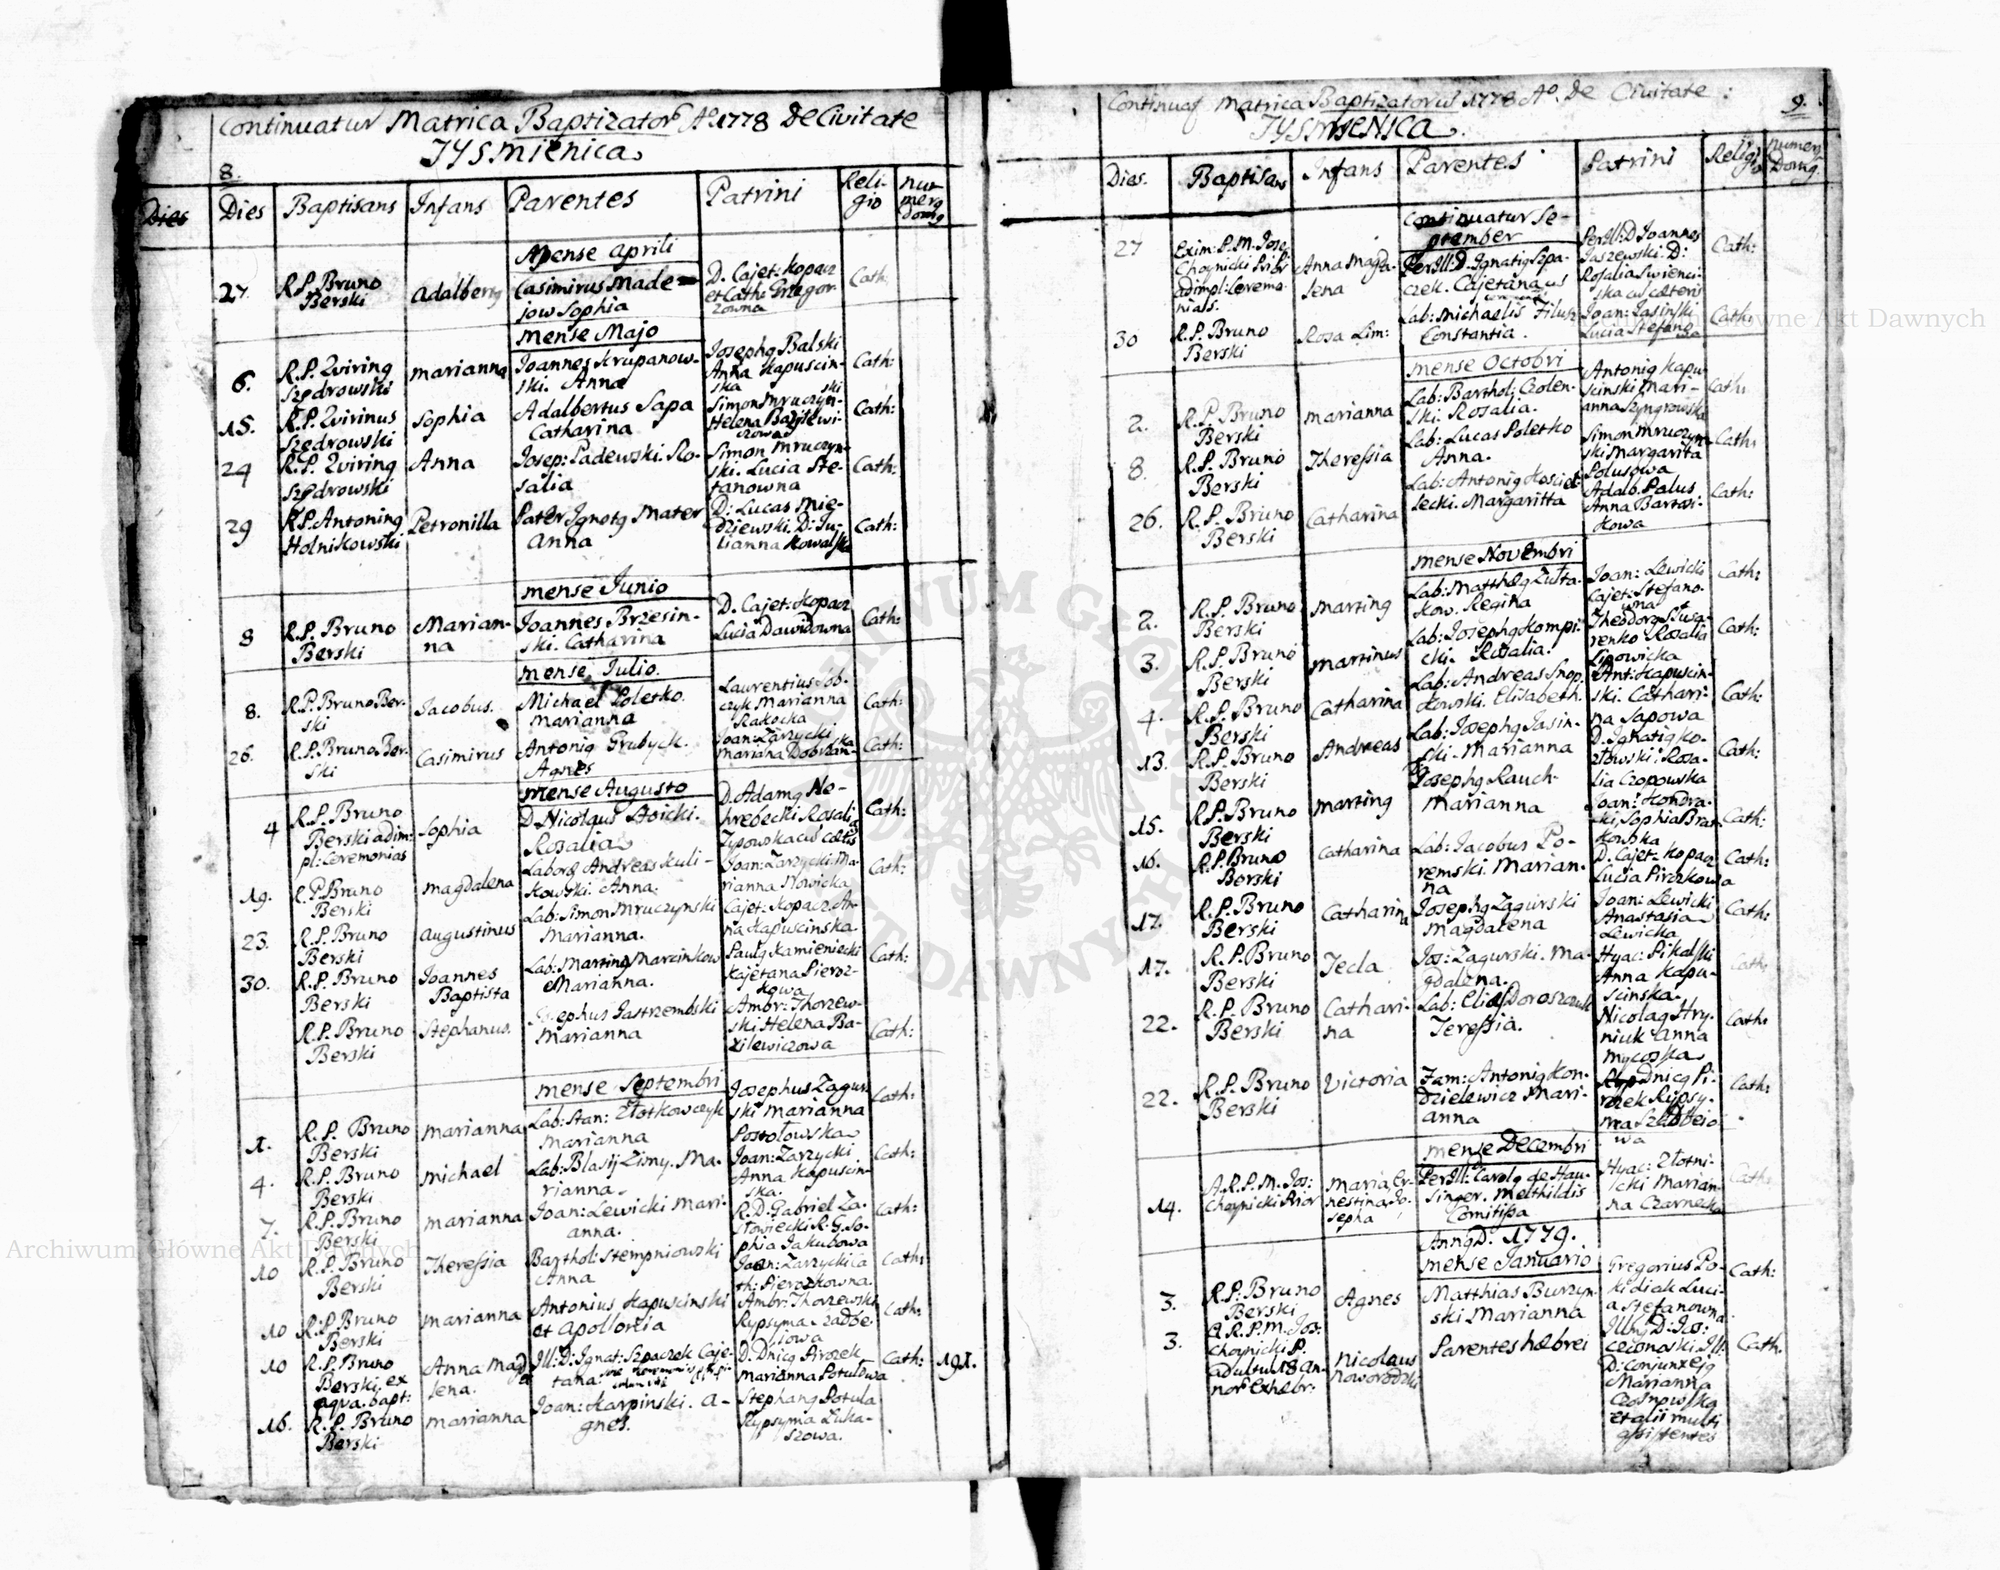 Continuatur Matrica Baptizator Ao 1778 De Civitate
TYSMIENICA
8.
Dies
Dies Baptisans Infans Parentes Patrini Reli-
gio
nu-
merg
domg
Mense Aprili
27. R.P. Bruno
Berski
Adalbertg
Casimirus Made-
jow Sophia
D. Cajet: Kopacz
et Cath: Gregor-
zowna
Cath:
mense Majo
6. R.P. Quiring
Szedrowski
Marianna
Joannes Krupanow-
ski. Anna
Josephg Balski
Anna Kapuscin-
ska
Cath:
15. R.P. Quirinus
Szedrowski
Sophia
Adalbertus Sapa
Catharina
Simon Mruczyn-
ski
Helena Bazilewi-
czowa
Cath:
24 R.P. Quiring
Szedrowski
Anna
Josep: Padewski. Ro-
salia
Simon Mruczyn-
ski. Lucia Ste-
fanowna
Cath:
29 R.P. Antoning
Holnikowski
Petronilla
Pater Ignotg Mater
Anna
D: Lucas Mie-
dziewski. D: Ju-
lianna Kowalska
Cath:
mense Junio
8 R.P. Bruno
Berski
Marian-
na
Joannes Brzesin-
ski. Catharina
D. Cajet: Kopacz
Lucia Dawidowna
Cath:
mense Julio.
8. R.P. Bruno Ber-
ski
Jacobus.
Michael Poletko.
Marianna
Laurentius Sob-
czyk Marianna
Rakocka
Cath:
26. R.P. Bruno Ber-
ski
Casimirus
Antonig Grubyck.
Agnes
Joan: Zarzycki
Mariana Dobrzanska
Cath:
mense Augusto
4 R.P. Bruno
Berski adim-
pl: Ceremonias
Sophia
D. Nicolaus Stoicki.
Rosalia
D. Adamg No-
hrebecki Rosalia
Typowska cu cœtis
Cath:
19. R.P. Bruno
Berski
Magdalena
Laborg Andreas Kuli-
kowski. Anna.
Joan: Zarzycki. Ma-
rianna Nowicka
Cath:
23. R.P. Bruno
Berski
Augustinus
Lab: Simon Mruczynski
Marianna.
Cajet: Kopacz. An-
na Kapuscinska
30. R.P. Bruno
Berski
Joannes
Baptista
Lab: Marting Marcinkow
Marianna.
Paulg Kamieniecki
Kajetana Pieroz-
kowa
Cath:
R.P. Bruno
Berski
Stephanus.
Josephus Jastrzembski
Marianna
Ambr: Thorzew-
ski Helena Ba-
zilewiczowa
Cath:
mense Septembri
1. R.P. Bruno
Berski
Marianna
Lab: Stan: Złotkowczyk
Marianna
Josephus Zagur-
ski Marianna
Postołowska
Cath:
4. R.P. Bruno
Berski
Michael
Lab: Blasij Zimy. Ma-
rianna.
Joan: Zarzycki.
Anna Kapuscin-
ska.
Cath:
7. R.P. Bruno
Berski
Marianna
Joan: Lewicki Mari-
anna.
R.D. Gabriel Za-
słowiecki R.G. So-
phia Jakubowa
Cath:
10 R.P. Bruno
Berski
Theressia
Barthol: Stempniowski
Anna
Joan: Zarzycki Ca
th: Pierozkowna.
Cath:
10 R.P. Bruno
Berski
Marianna
Antonius Kapuscinski
et Apollonia
Ambr: Thorzewski
Rypsyma Szadbe-
jowa
Cath:
10 R.P. Bruno
Berski. ex
aqua. bapt:
Anna Magda
lena.
Ill: D: Ignat: Szpaczek Caje-
tana
D. Dnicg Pirozek
Marianna Potulowa
Cath: 191.
16. R.P. Bruno
Berski
Marianna
Joan: Karpinski. A-
gnes.
Stephang Potula
Rypsyma Luka-
szowa.
Continuat Matrica Baptizatorum 1778 Ao. De Civitate:
9.
TYSMIENICA.
Dies. Baptisans Infans Parentes Patrini Religi
o
numerg
Domg.
Continuatur Se-
ptember
27 Exim: P.M. Jose:
Choynicki Prior
adimpl: Ceremo-
nials.
Anna Magda-
lena
Perill: D. Ignatig Szpa-
czek. Cajetana
Perill: D Joannes
Jaszewski. D:
Rosalia Swienci-
ska cu cœteris
Cath:
30 R.P. Bruno
Berski
Rosa Lim:
Lab: Michaelis Filusz
Constantia.
Joan: Jasinski
Lucia Stefano
Cath:
mense Octobri
2. R.P. Bruno
Berski
Marianna
Lab: Barthol: Czolen-
ski. Rosalia.
Antonig Kapu-
scinski Mari-
anna Szyngrowska
Cath:
8. R.P. Bruno
Berski
Theressia
Lab: Lucas Poletko
Anna.
Simon Mruczyn-
ski Margarita
Polusowa
Cath:
26. R.P. Bruno
Berski
Catharina
Lab: Antonig Koscie-
lecki. Margaritta
Adalb. Palus
Anna Bartosi-
kowa
Cath:
mense Novembri
2. R.P. Bruno
Berski
Marting
Lab: Mattheg Zulta-
kow. Regina
Joan: Lewicki
Cajet: Stefano-
wna
Cath:
3. R.P. Bruno
Berski
Martinus
Lab: Josephg Kompi-
cki. Rosalia.
Theodorg Slusa-
renko Rosalia
Lipowicka
Cath:
4. R.P. Bruno
Berski
Catharina
Lab: Andreas Snop-
kowski. Elisabeth.
Ant: Kapuscin-
ski. Cathari-
na Sapowa
Cath:
13. R.P. Bruno
Berski
Andreas
Lab: Josephg Jasin-
ski. Marianna
D. Ignatig Ko-
złowski; Rosa-
lia Czopowska
Cath:
15. R.P. Bruno
Berski
Marting
Josephg Rauch-
Marianna
Joan: Kondra-
cki, Sophia Bras-
kowska
Cath:
16. R.P. Bruno
Berski
Catharina
Lab: Jacobus Po-
remski. Marian-
na
D. Cajet: Kopacz
Lucia Pirozkowa
Cath:
17. R.P. Bruno
Berski
Catharina
Josephg Zagurski
Magdalena
Joan: Lewicki
Anastasia
Lewicka
Cath:
17. R.P. Bruno
Berski
Tecla
Jos: Zagurski. Ma-
gdalena.
Hyac: Pikalski
Anna Kapu-
scinska
Cath:
22. R.P. Bruno
Berski
Cathari-
na
Lab: Elias Doroszczuk
Teressia.
Nicolag Hry-
niuk Anna
Mycoska
Cath:
22. R.P. Bruno
Berski
Victoria
Fam: Antonig Kon-
dzielewicz Mari-
anna
Dnicg Pi-
rozek Rypsy-
ma Szadbeio
wa
Cath:
mense Decembri
14. A.R.P.M. Jos:
Choynicki Prior
Maria Er-
nestina Jo-
sepha
Perill: Carolg de Hau-
singer. Melthildis
Comitissa
Hyac: Złotni-
icki Marian-
na Czarnecka
Cath:
Anng D. 1779.
mense Januario
3. R.P. Bruno
Berski
Agnes
Matthias Burzyn-
ski Marianna
Gregorius Po-
kidiak Luci-
a Stefanowna
Cath:
3. A.R.P.M. Jos:
Choynicki P.
adultu 18 an-
nor Exhebr:
Nicolaus
Noworodzki
Parentes hebrei
Illng D: Jos:
Cezonoski. Ill:
D: Conjunx ejg
Marianna
Czosnowska
et alii multi
assistentes
Cath.
Archiwum Główne Akt Dawnych
Archiwum Główne Akt Dawnych
ARCHIWUM GŁÓWNE
AKT DAWNYCH